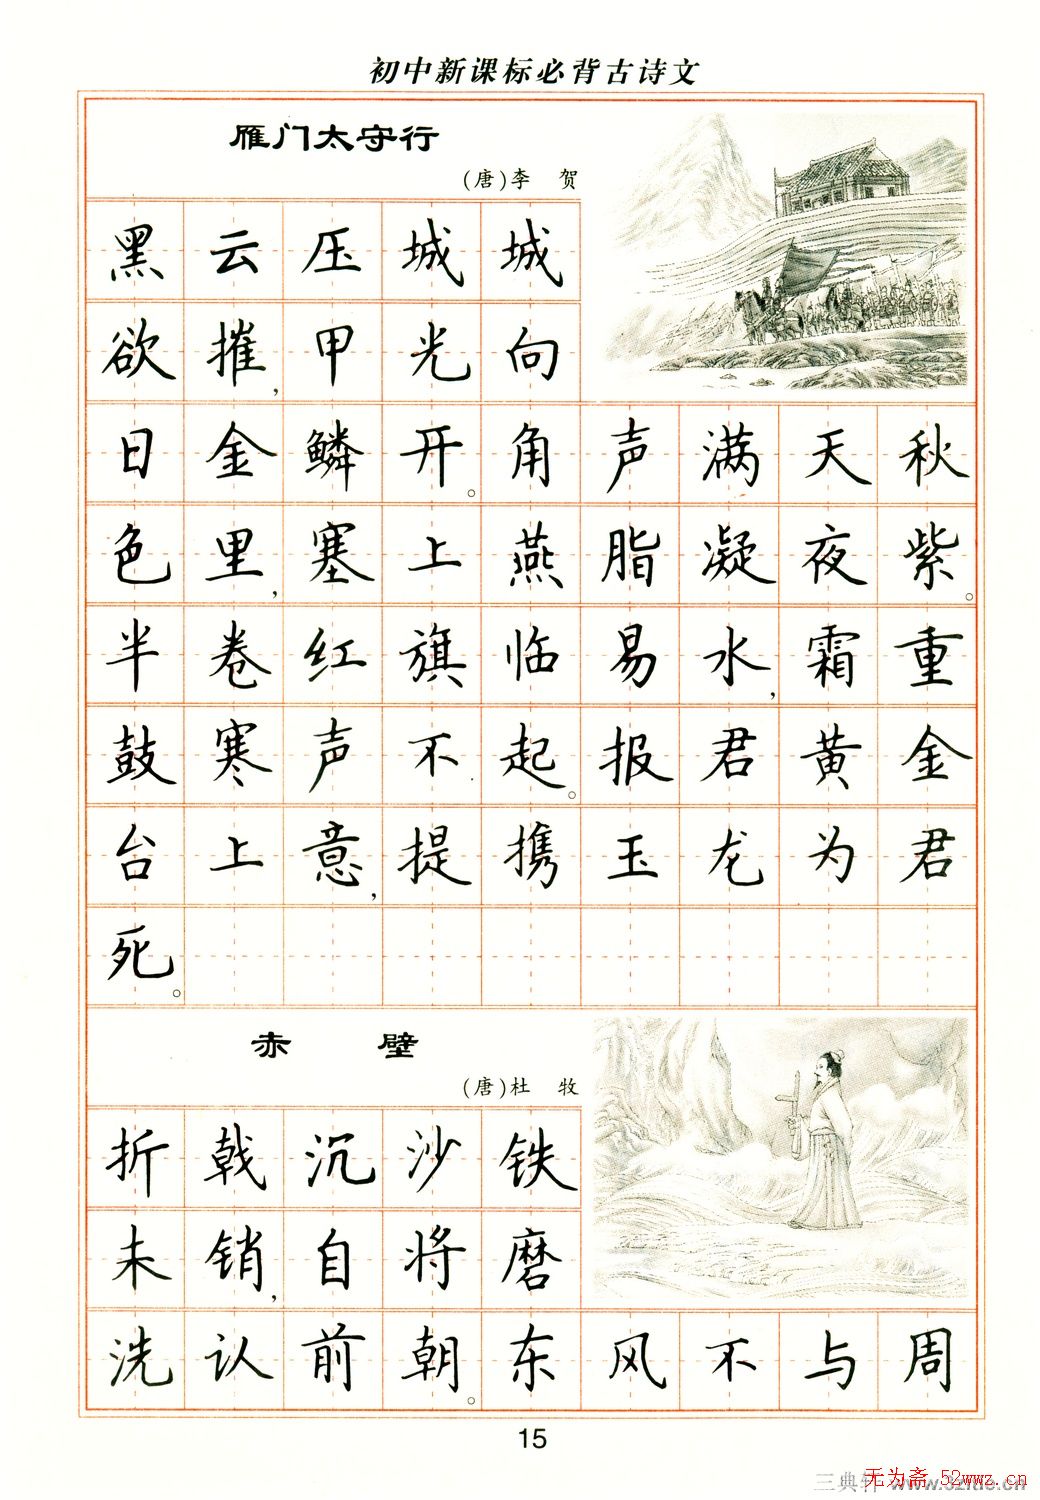 初中新课标必背古诗文
雁门太守行
(唐)李 贺
黑云压城城
欲摧,甲光向
日金鳞开。角声满天秋
色里,塞上燕脂凝夜紫。
半卷红旗临易水,霜重
鼓寒声不起。报君黄金
台上意,提携玉龙为君
死。
赤 壁
(唐)杜 牧
折戟沉沙铁
未销,自将磨
洗认前朝。东风不与周
15
三典轩 www.
无为斋 52wwz.cn